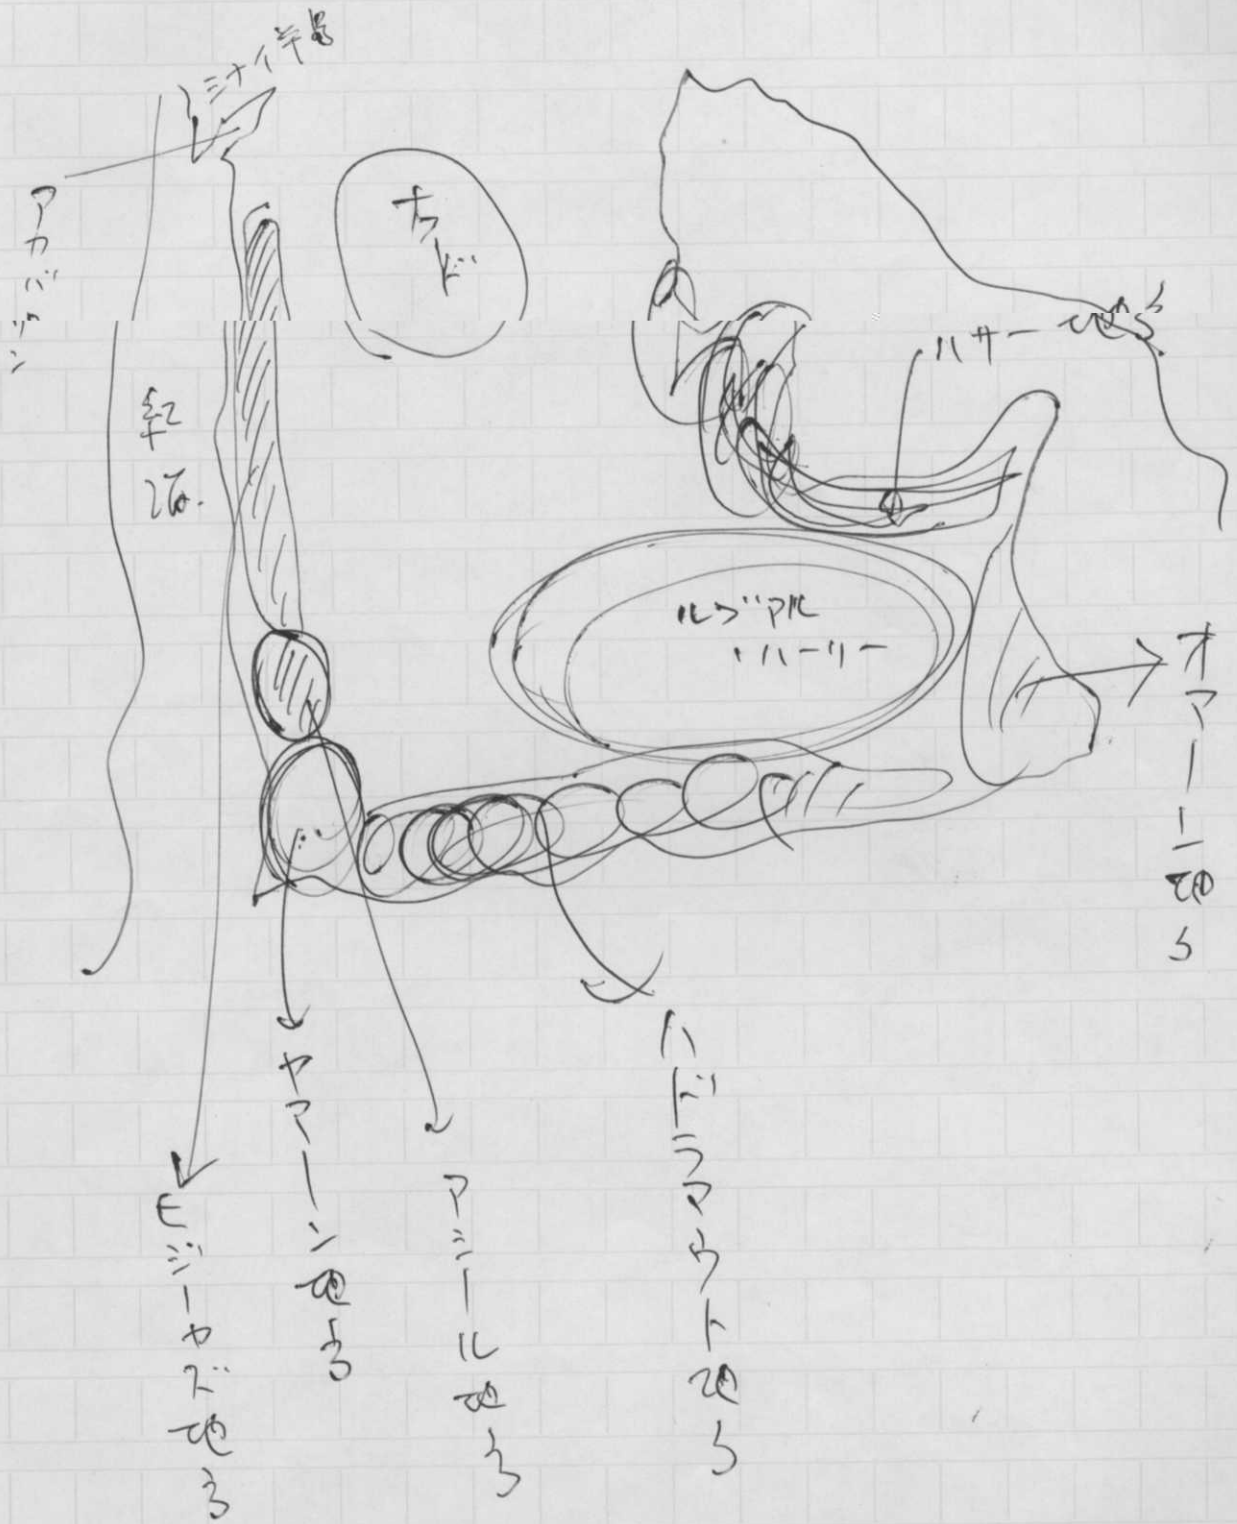 シナイ半島
アカバワン
ナジド
紅海.
ハサー地方
ルブアル
・ハーリー
オマーン地方
ハドラマウト地方
アシール地方
ヤマーン地方
ヒジーャズ地方